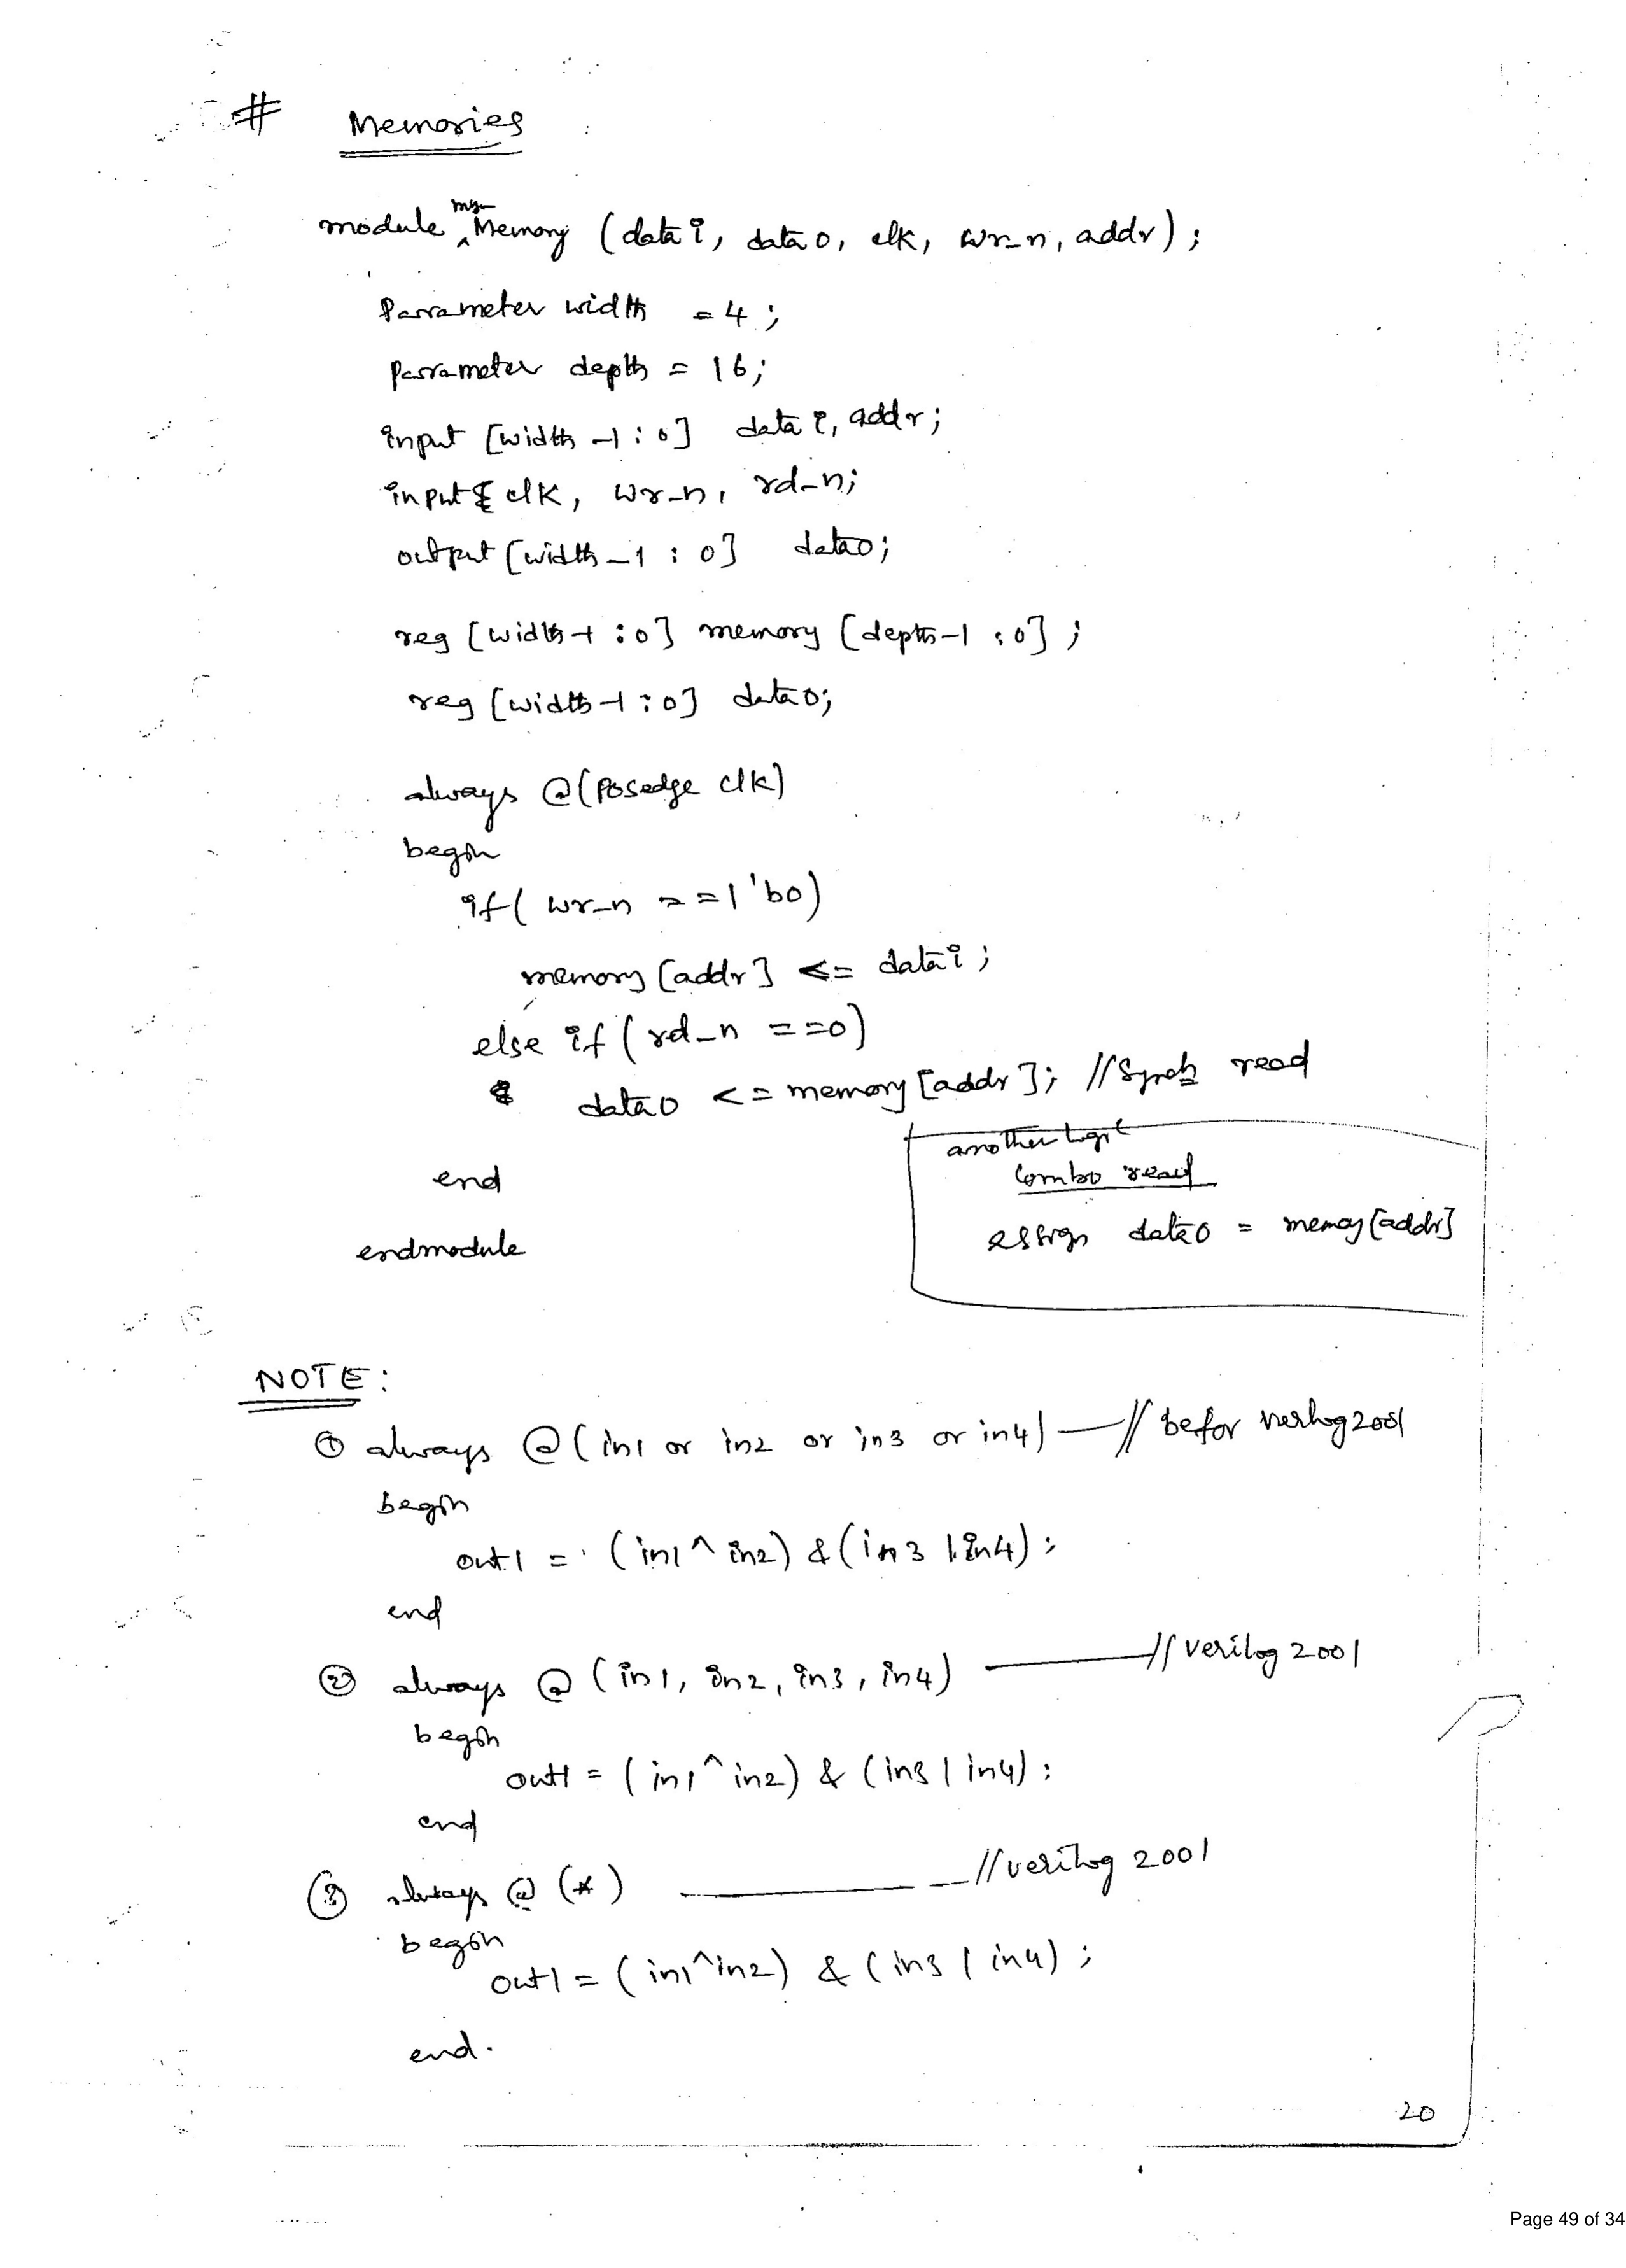 # Memories
module my Memory (data i, data o, clk, wr_n, addr);
Parameter width = 4;
parameter depth = 16;
input [width -1 : 0] data i, addr;
input clk, wr_n, rd_n;
output [width -1 : 0] data o;
reg [width-1 : 0] memory [depth-1 : 0];
reg [width-1 : 0] data o;
always @(posedge clk)
begin
if( wr_n == 1'b0)
memory [addr] <= data i;
else if (rd_n ==0)
data o <= memory [addr]; // Synch read
another logic
Combo read
end
assign data o = memoy [addr]
endmodule
NOTE:
① always @ (in1 or in2 or in3 or in4) — // befor verilog 2001
begin
out1 = (in1 ^ in2) & (in3 | in4);
end
② always @ (in1, in2, in3, in4) — // verilog 2001
begin
out1 = (in1 ^ in2) & (in3 | in4);
end
③ always @ (*) — // verilog 2001
begin
out1 = (in1 ^ in2) & (in3 | in4);
end.
20
Page 49 of 34